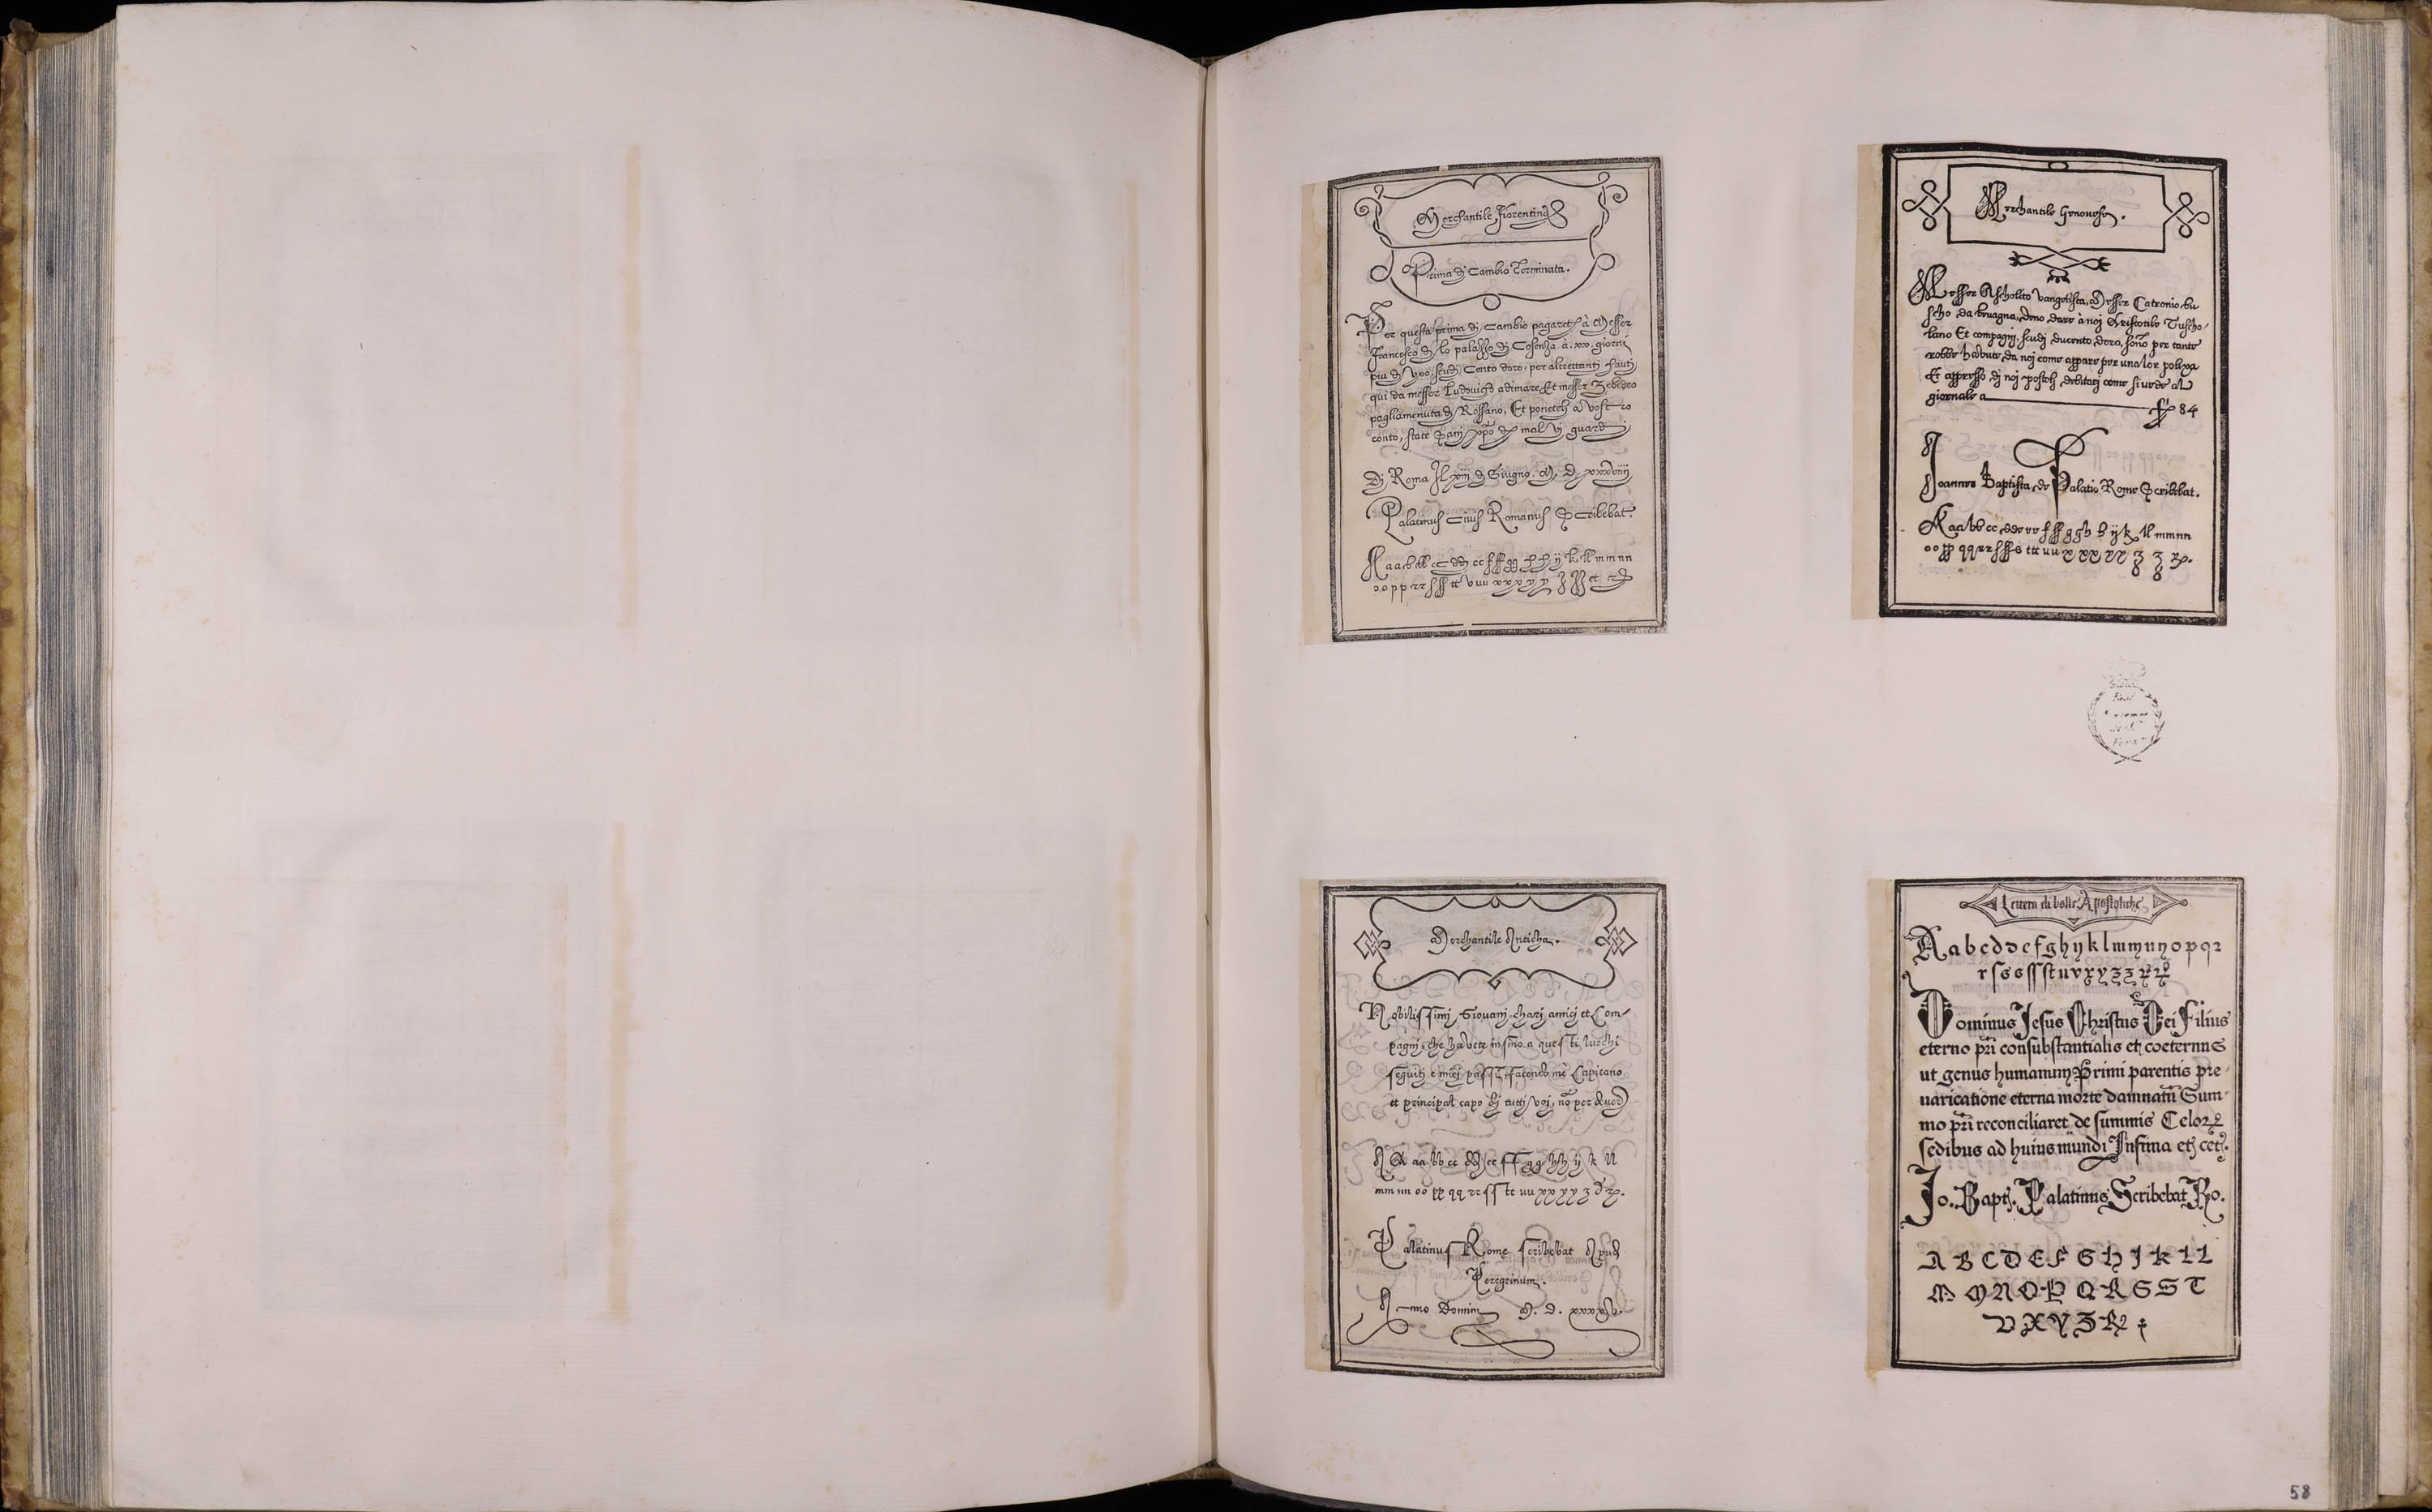 Merchantile Fiorentina
Prima di Cambio Terminata.
Per questa prima di Cambio pagareti à Messer
Francesco di lo palazzo di Cosenza à .xx. giorni
piu di vxo, scudi Cento doro, per altrettanti hauti
qui da messer Ludovico adimare, Et messer Zebedeo
pagliamenuta di Rossano, Et poneteli a vostro
conto, state Sani, xpo di mal vi guardi
Di Roma Il xiij di Giugno. M. D. xxxviiij
Palatinus Civis Romanus Scribebat.
A a a b bb cc dd ee f ff gg h h ij k ll mm nn
oo pp rr s ss tt v uu xx x y y z zz et
Merchantile Genouese.
Messer Ascholito Vangelista, Messer Catronio bu
scho da beuagna, deno dare à noj Aristotile Tuscho-
lano Et compagnj, scudj ducento, doro, sono per tante
robbe habute da noj come appare per una lor polixa
Et appresso dj noj postolj debitorj come si uede al
giornale a 84
Joannes Baptista de Palatio Rome Scribebat.
A aa bb cc dd ee ff gg h h ij k ll mm nn
oo pp qq rr ss s ttt uu x x x y y z z
Merchantile Anticha.
Nobilissimj Giovanj charj amicj et Com-
pagnj, che havete insino a questi luochi
seguitj e miej passi facendo me Capitano
et principal capo dj tuttj voj, no per dover
A A aa bb cc dd ee ff gg hh ij k ll
mm nn oo pp qq rr ss tt uu xx yy z
Palatinus Rome scribebat Apud
Peregrinum.
Anno Domini M. D.
Lettera di bolle Apostoliche
A a b c d d e f g h y k l m m n n o p q r
r s s s ss st u v x y z z
Dominus Jesus Christus Dei Filius
eterno pri consubstantialis et coeternus
ut genus humanum Primi parentis pre-
uaricatione eterna morte damnatu Sum-
mo pri reconciliaret de summis Celor
sedibus ad huius mundi Infima et cet.
Jo. Bapt. Palatinus Scribebat Ro.
A B C D E F G H I K L L
M M N O P Q R S S T
V X Y Z
58